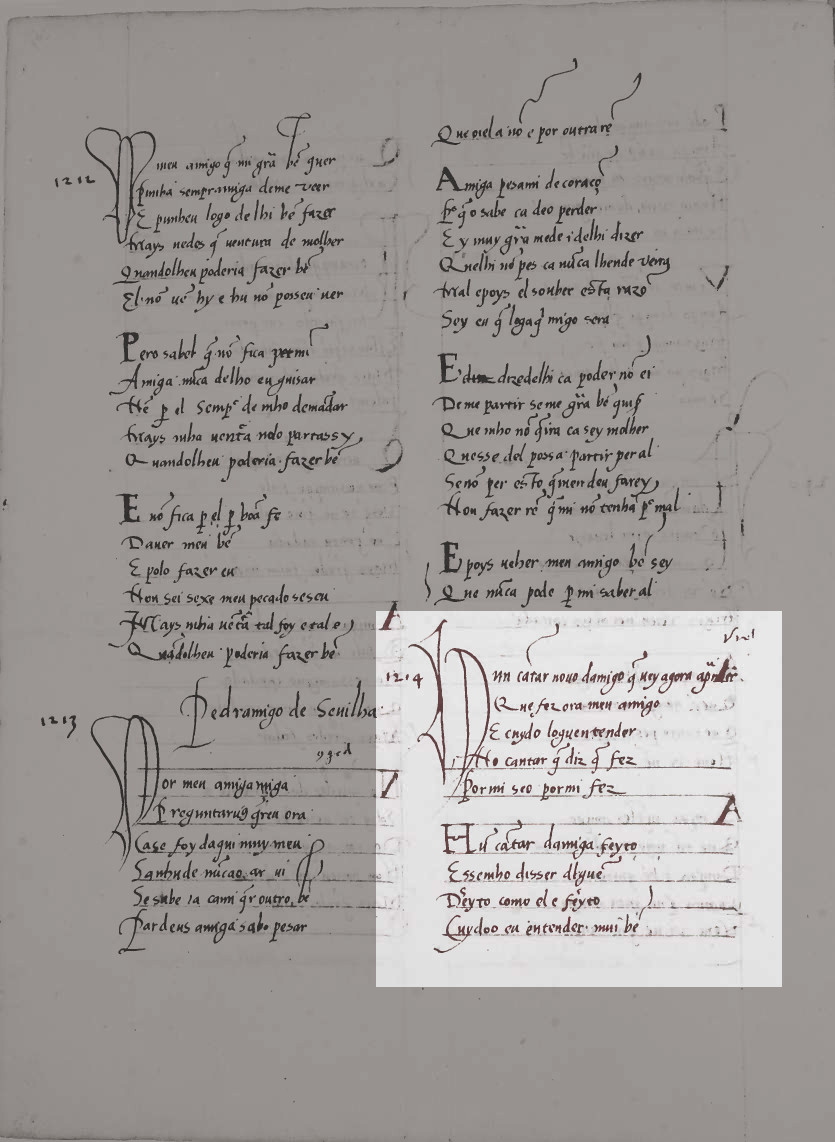 1212
M meu amigo q̄ mi grã bē quer
punha sempramiga deme veer
E punheu logo delhi bē fazer
Mays uedes q̄ uentura de molher
Quandolheu poderia fazer bē
El nō uē hy e hu nō posseu uer
Pero sabel q̄ nō fica per mī
Amiga nūca delho eu guisar
Nē p el Sempr̄ demho demādar
Mays nūha uentã nolo partassy
Quandolheu poderia fazer bē
E nō fica p el p bōa fe
Dauer meu bē
E polo fazer eu
Non sei sexe meu pecado sexeu
Mays nūha uētã tal foy e tal e
Quãdolheu poderia fazer bē
Pedramigo de Seuilha
1213
Por meu amigamiga
Preguntarug q̄reu ora
Ca se foy daqui muy meu
Sanhude nūcao ar ui
Se sabe ia cami q̄r outro bē
Par deus amiga sabo pesar
Que oiel a nō e por outra rē
Amiga pesami de coraçō
Pr̄q̄ o sabe ca deo perder
E y muy grã medei delhi dizer
Quelhi nō pes ca nūca lhende vērra
Mal e poys el souber esta razō
Sey eu q̄ logaq̄ migo sera
E dizedelhi ca poder nō ei
Deme partir seme grã bē quis
Que mho nō q̄ira ca sey molher
Quesse del possa partir per al
Senō per esto q̄mendeu farey
Non fazer rē q̄ mi nō tenhã pr̄ mal
E poys ueher meu amigo bē sey
Que nūca pode p mi saber al
1214
Hun cãtar nouo damigo q̄rey agora aprēder
Que fez ora meu amigo
E cuydo loguentender
No cantar q̄ diz q̄ fez
Por mi seo por mi fez
Hū cãtar damiga feyto
Essemho disser alguē
Dereyto como el e feyto
Cuydoo eu entender mui bē